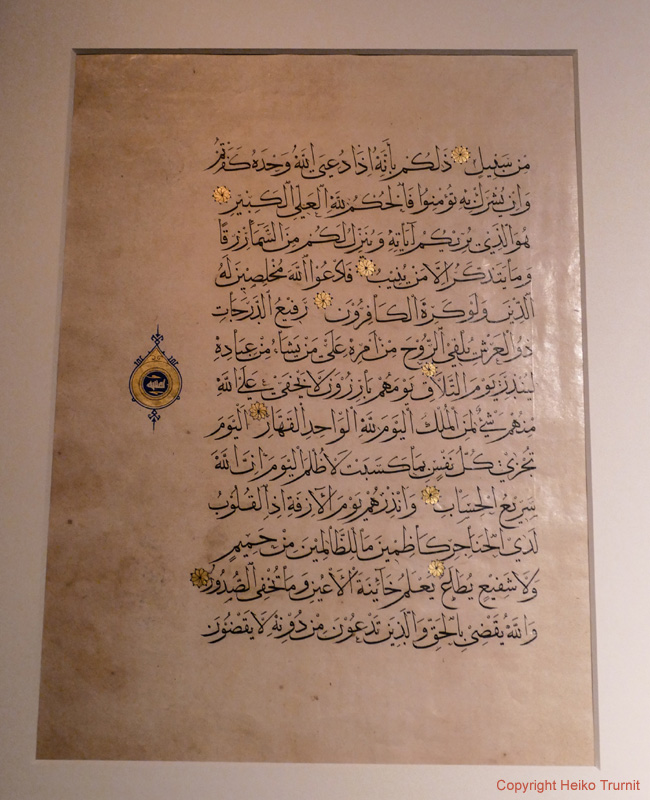 مِن سَبِيلٍ ذَلِكُم بِأَنَّهُ إِذَا دُعِيَ اللَّهُ وَحْدَهُ كَفَرْتُمْ
وَإِن يُشْرَكْ بِهِ تُؤْمِنُوا فَالْحُكْمُ لِلَّهِ الْعَلِيِّ الْكَبِيرِ
هُوَ الَّذِي يُرِيكُمْ آيَاتِهِ وَيُنَزِّلُ لَكُم مِنَ السَّمَاءِ رِزْقًا
وَمَا يَتَذَكَّرُ إِلَّا مَن يُنِيبُ فَادْعُوا اللَّهَ مُخْلِصِينَ لَهُ
الدِّينَ وَلَوْ كَرِهَ الْكَافِرُونَ رَفِيعُ الدَّرَجَاتِ
ذُو الْعَرْشِ يُلْقِي الرُّوحَ مِنْ أَمْرِهِ عَلَى مَن يَشَاءُ مِنْ عِبَادِهِ
لِيُنذِرَ يَوْمَ التَّلَاقِ يَوْمَ هُم بَارِزُونَ لَا يَخْفَى عَلَى اللَّهِ
مِنْهُمْ شَيْءٌ لِمَنِ الْمُلْكُ الْيَوْمَ لِلَّهِ الْوَاحِدِ الْقَهَّارِ الْيَوْمَ
تُجْزَى كُلُّ نَفْسٍ بِمَا كَسَبَتْ لَا ظُلْمَ الْيَوْمَ إِنَّ اللَّهَ
سَرِيعُ الْحِسَابِ وَأَنذِرْهُمْ يَوْمَ الْآزِفَةِ إِذِ الْقُلُوبُ
لَدَى الْحَنَاجِرِ كَاظِمِينَ مَا لِلظَّالِمِينَ مِنْ حَمِيمٍ
وَلَا شَفِيعٍ يُطَاعُ يَعْلَمُ خَائِنَةَ الْأَعْيُنِ وَمَا تُخْفِي الصُّدُورُ
وَاللَّهُ يَقْضِي بِالْحَقِّ وَالَّذِينَ تَدْعُونَ مِن دُونِهِ لَا يَقْضُونَ
Copyright Heiko Trurnit